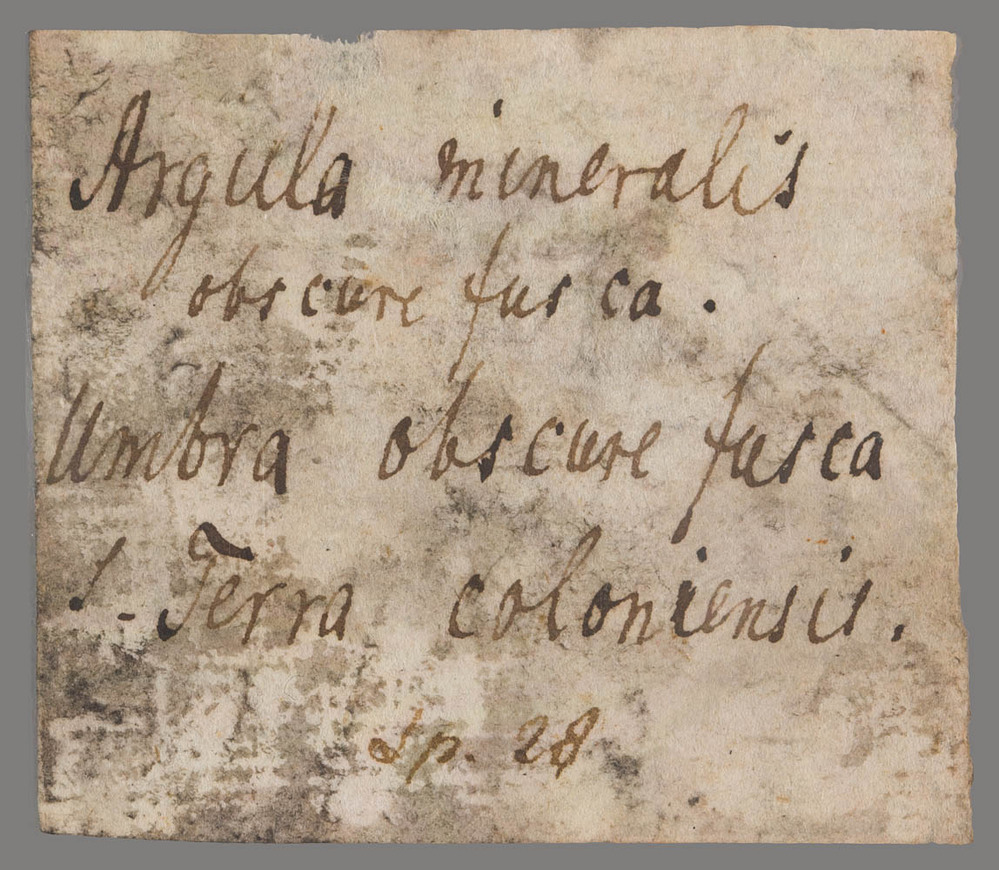 Argilla mineralis
obscure fusca.
Umbra obscure fusca
s. Terra coloniensis.
Sp. 28